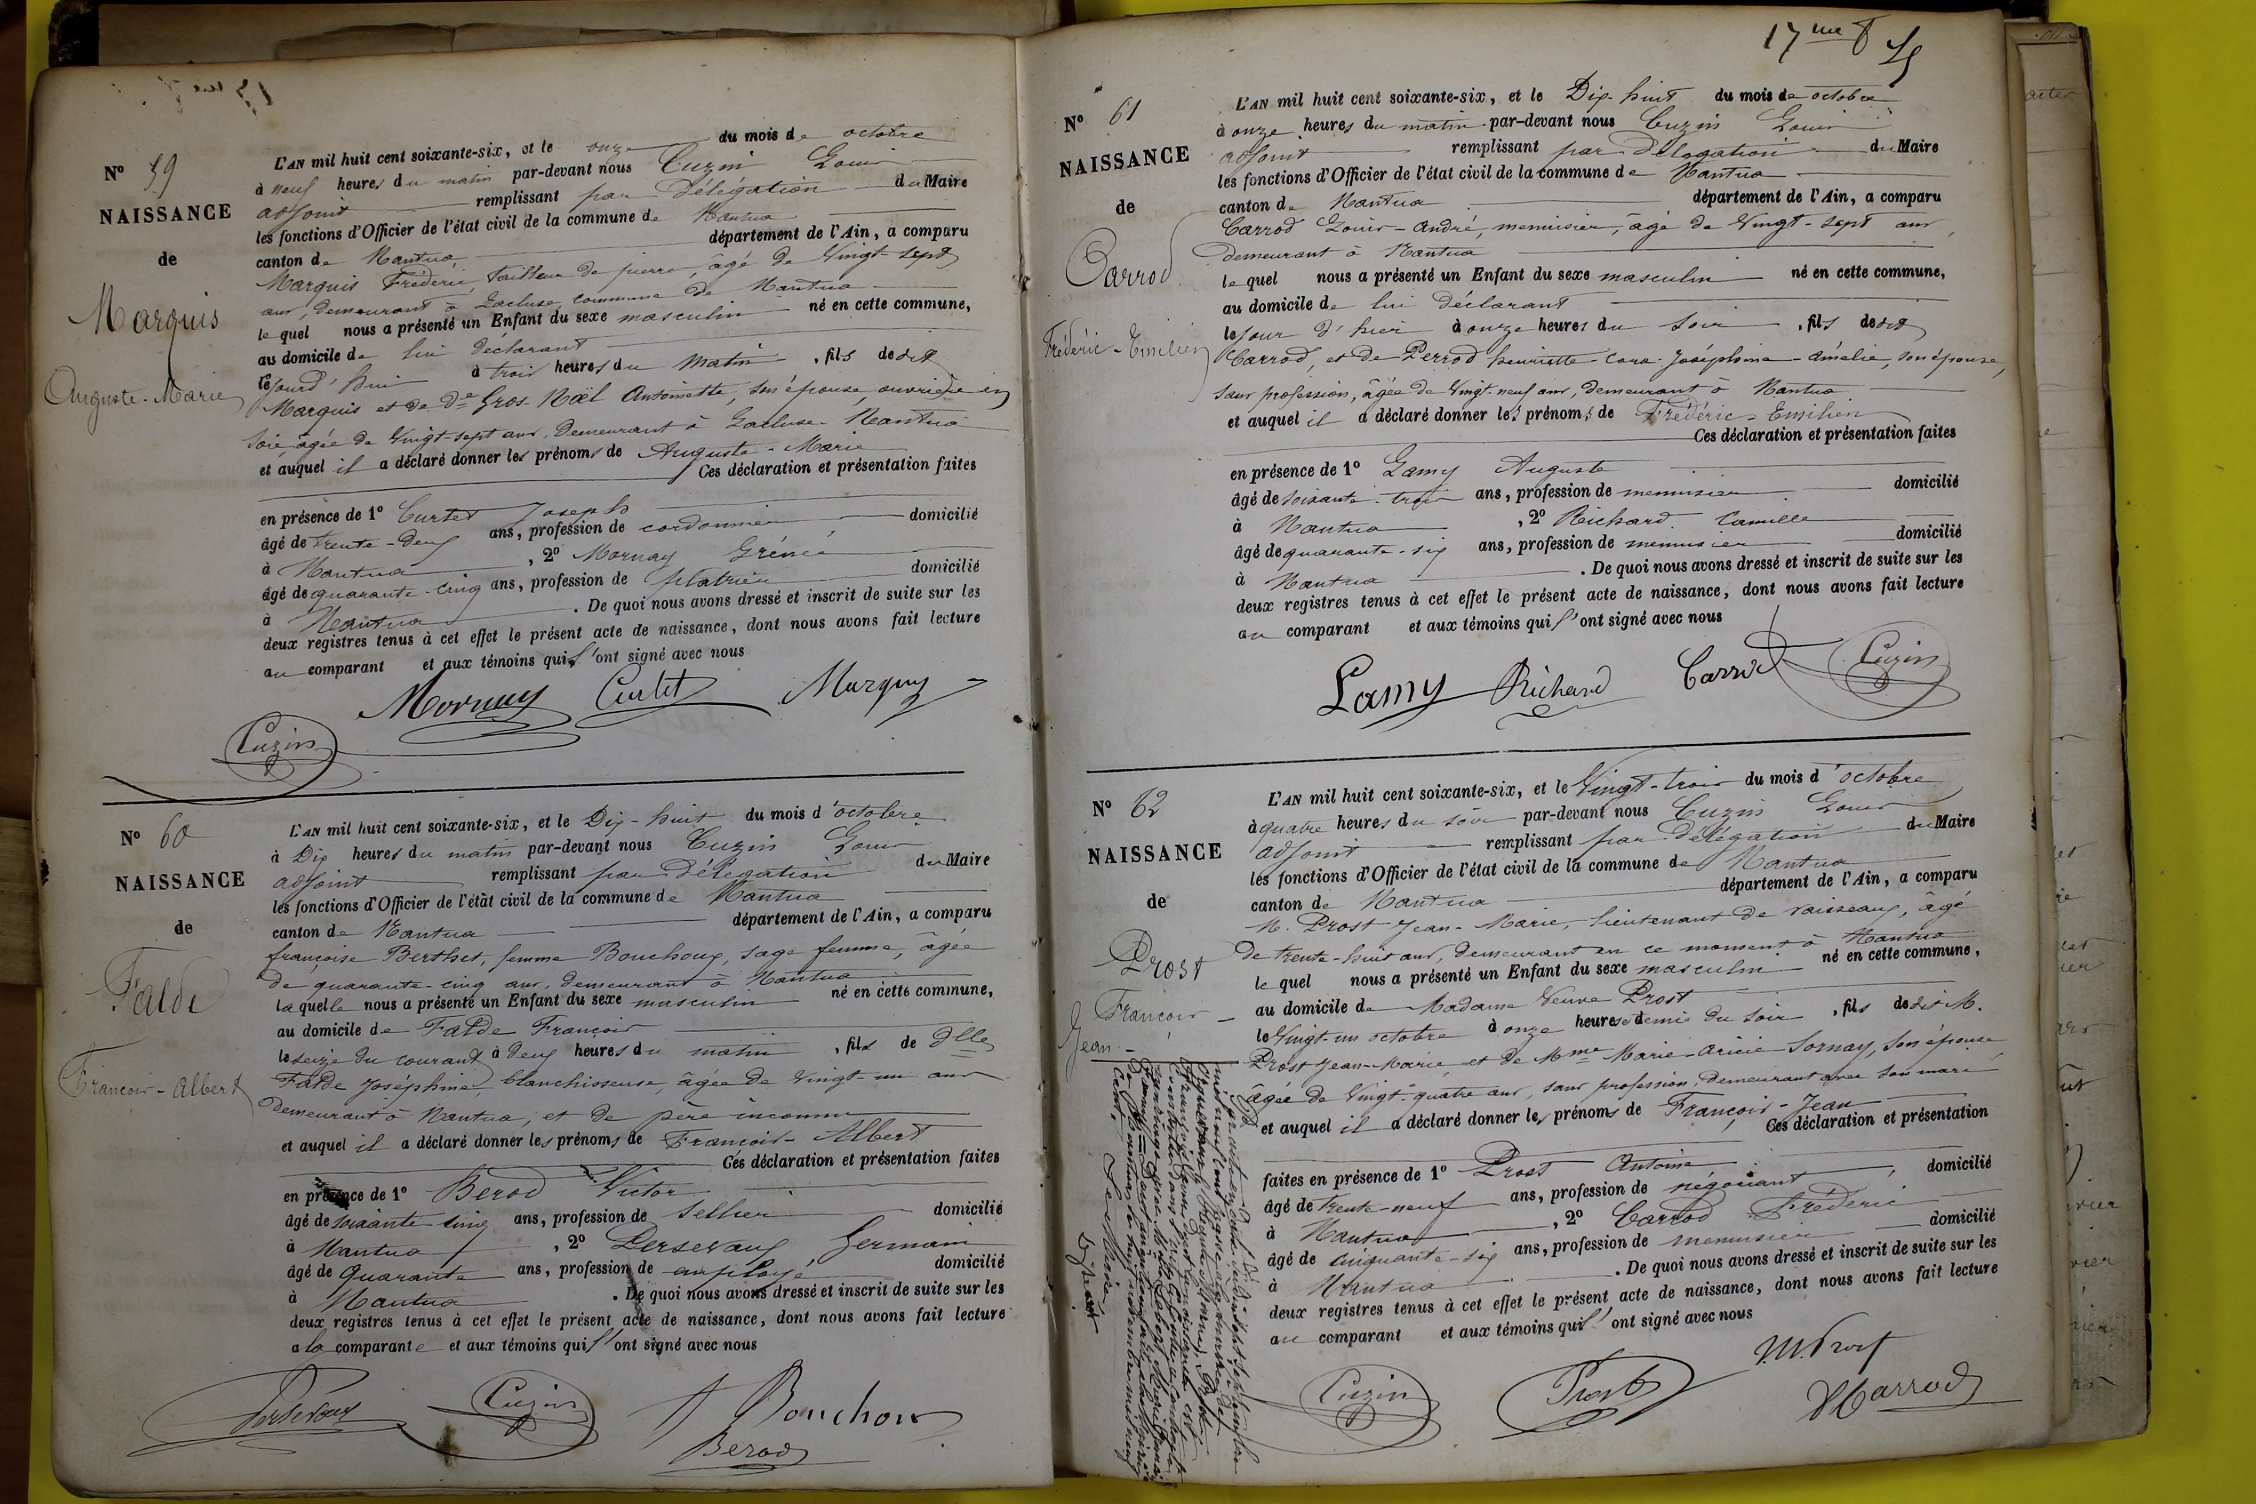 N° 59
NAISSANCE
de
Marquis
Auguste-Marie
L'AN mil huit cent soixante-six, et le onze du mois de octobre
à neuf heures du matin par-devant nous Cuzin Louis
adjoint remplissant par Délégation du Maire
les fonctions d'Officier de l'état civil de la commune de Nantua
canton de Nantua département de l'Ain, a comparu
Marquis Frédéric, tailleur de pierre, âgé de Vingt-sept
ans, demeurant à Lacluse, commune de Nantua
le quel nous a présenté un Enfant du sexe masculin né en cette commune,
au domicile de lui déclarant
le jourd'hui à trois heures du matin, fils de dit
Marquis et de De Gros Noël Antoinette, son épouse, ouvrière en
soie, âgée de Vingt-sept ans, demeurant à Lacluse Nantua
et auquel il a déclaré donner les prénoms de Auguste-Marie
Ces déclaration et présentation faites
en présence de 1° Curtet Joseph
âgé de trente-deux ans, profession de cordonnier domicilié
à Nantua, 2° Mornay Gréné
âgé de quarante-cinq ans, profession de platrier domicilié
à Nantua. De quoi nous avons dressé et inscrit de suite sur les
deux registres tenus à cet effet le présent acte de naissance, dont nous avons fait lecture
au comparant et aux témoins qui l'ont signé avec nous
Mornay Curtet Marquis
Cuzin
N° 60
NAISSANCE
de
Falde
François-Albert
L'AN mil huit cent soixante-six, et le Dix-huit du mois d'octobre
à Dix heures du matin par-devant nous Cuzin Louis
adjoint remplissant par Délégation du Maire
les fonctions d'Officier de l'état civil de la commune de Nantua
canton de Nantua département de l'Ain, a comparu
françoise Berthet, femme Bouchoux, sage femme, âgée
de quarante-cinq ans, demeurant à Nantua
laquelle nous a présenté un Enfant du sexe masculin né en cette commune,
au domicile de Falde François
le seize du courant à deux heures du matin, fils de Dlle
Falde Joséphine, blanchisseuse, âgée de Vingt-un ans
demeurant à Nantua, et de père inconnu
et auquel il a déclaré donner les prénoms de François-Albert
Ces déclaration et présentation faites
en présence de 1° Berod Victor
âgé de soixante cinq ans, profession de sellier domicilié
à Nantua, 2° Persevaux Germain
âgé de Quarante ans, profession de employé domicilié
à Nantua. De quoi nous avons dressé et inscrit de suite sur les
deux registres tenus à cet effet le présent acte de naissance, dont nous avons fait lecture
a la comparante et aux témoins qui l'ont signé avec nous
Cuzin Bouchoux
Berod
17me f
N° 61
NAISSANCE
de
Carrod
Frédéric-Emilien
L'AN mil huit cent soixante-six, et le Dix-huit du mois de octobre
à onze heures du matin par-devant nous Cuzin Louis
adjoint remplissant par Délégation du Maire
les fonctions d'Officier de l'état civil de la commune de Nantua
canton de Nantua département de l'Ain, a comparu
Carrod Louis-André, menuisier, âgé de Vingt-sept ans,
demeurant à Nantua
le quel nous a présenté un Enfant du sexe masculin né en cette commune,
au domicile de lui déclarant
le jour d'hier à onze heures du soir, fils de dit
Carrod, et de Perrod henriette-Cora-Joséphine-Amélie, son épouse,
sans profession, âgée de Vingt-neuf ans, demeurant à Nantua
et auquel il a déclaré donner les prénoms de Frédéric-Emilien
Ces déclaration et présentation faites
en présence de 1° Lamy Auguste
âgé de soixante-trois ans, profession de menuisier domicilié
à Nantua, 2° Richard Camille
âgé de quarante-six ans, profession de menuisier domicilié
à Nantua. De quoi nous avons dressé et inscrit de suite sur les
deux registres tenus à cet effet le présent acte de naissance, dont nous avons fait lecture
au comparant et aux témoins qui l'ont signé avec nous
Lamy Richard Carrod Cuzin
N° 62
NAISSANCE
de
Prost
François-
Jean-
L'AN mil huit cent soixante-six, et le Vingt-trois du mois d'octobre
à quatre heures du soir par-devant nous Cuzin Louis
adjoint remplissant par Délégation du Maire
les fonctions d'Officier de l'état civil de la commune de Nantua
canton de Nantua département de l'Ain, a comparu
M. Prost Jean-Marie, lieutenant de vaisseau, âgé
de trente-huit ans, demeurant en ce moment à Nantua
le quel nous a présenté un Enfant du sexe masculin né en cette commune,
au domicile de Madame Veuve Prost
le Vingt-un octobre à onze heures & demie du soir, fils de dit M.
Prost Jean-Marie et de Mme Marie-Aricie Sornay, son épouse,
âgée de Vingt-quatre ans, sans profession, demeurant avec son mari
et auquel il a déclaré donner les prénoms de François-Jean
Ces déclaration et présentation
faites en présence de 1° Prost Antoine
âgé de trente-neuf ans, profession de négociant, domicilié
à Nantua, 2° Carrod Frédéric
âgé de cinquante-six ans, profession de menuisier domicilié
à Nantua. De quoi nous avons dressé et inscrit de suite sur les
deux registres tenus à cet effet le présent acte de naissance, dont nous avons fait lecture
au comparant et aux témoins qui l'ont signé avec nous
Cuzin Prost J.M. Prost
Carrod
Le Maire